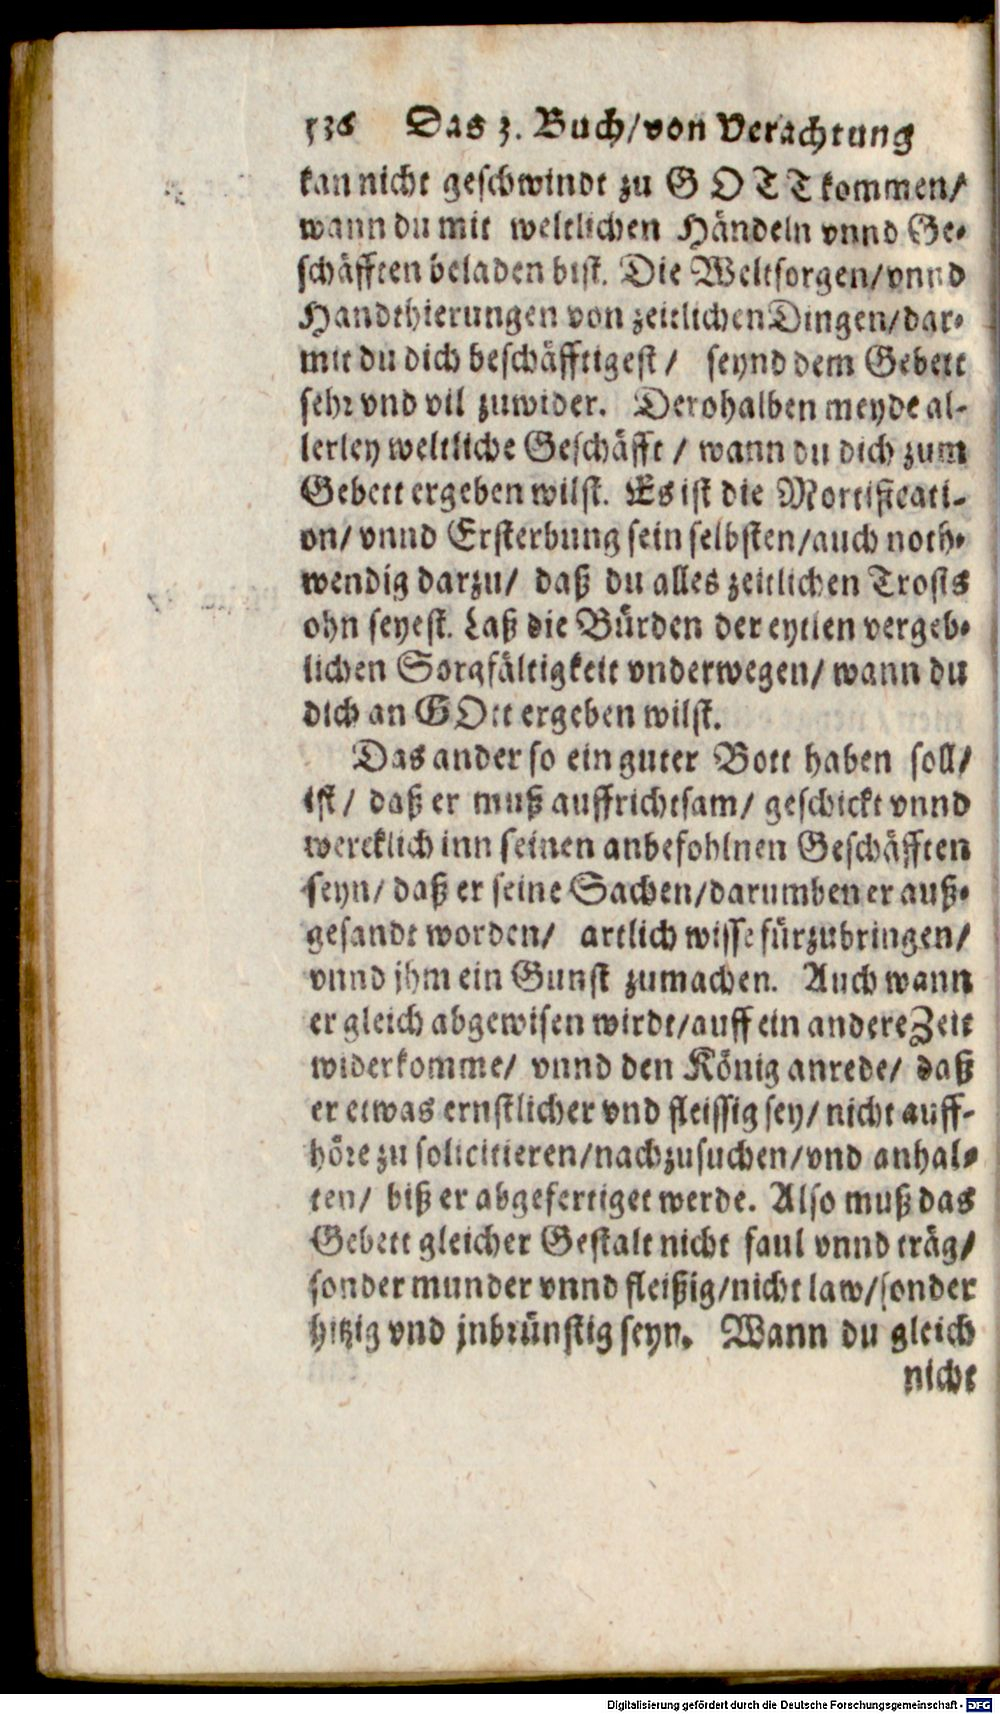 536 Das 3. Buch/von Verachtung
kan nicht geschwindt zu GOTT kommen/
wann du mit weltlichen Händeln vnnd Ge-
schäfften beladen bist. Die Weltsorgen/vnnd
Handthierungen von zeitlichen Dingen/dar-
mit du dich beschäfftigest/ seynd dem Gebett
sehr vnd vil zuwider. Derohalben meyde al-
lerley weltliche Geschäfft / wann du dich zum
Gebett ergeben wilst. Es ist die Mortificati-
on/ vnnd Ersterbung sein selbsten/auch noth-
wendig darzu/ daß du alles zeitlichen Trosts
ohn seyest. Laß die Bürden der eytlen vergeb-
lichen Sorgfältigkeit vnderwegen/ wann du
dich an GOtt ergeben wilst.
Das ander so ein guter Bott haben soll/
ist/ daß er muß auffrichtsam/ geschickt vnnd
wercklich inn seinen anbefohlnen Geschäfften
seyn/ daß er seine Sachen/darumben er auß-
gesandt worden/ artlich wisse fürzubringen/
vnnd jhm ein Gunst zumachen. Auch wann
er gleich abgewisen wirdt/auff ein andere Zeit
widerkomme/ vnnd den König anrede/ daß
er etwas ernstlicher vnd fleissig sey/ nicht auff-
höre zu solicitieren/nachzusuchen/vnd anhal-
ten/ biß er abgefertiget werde. Also muß das
Gebett gleicher Gestalt nicht faul vnnd träg/
sonder munder vnnd fleißig/nicht law/sonder
hitzig vnd jnbrünstig seyn. Wann du gleich
nicht
Digitalisierung gefördert durch die Deutsche Forschungsgemeinschaft - DFG